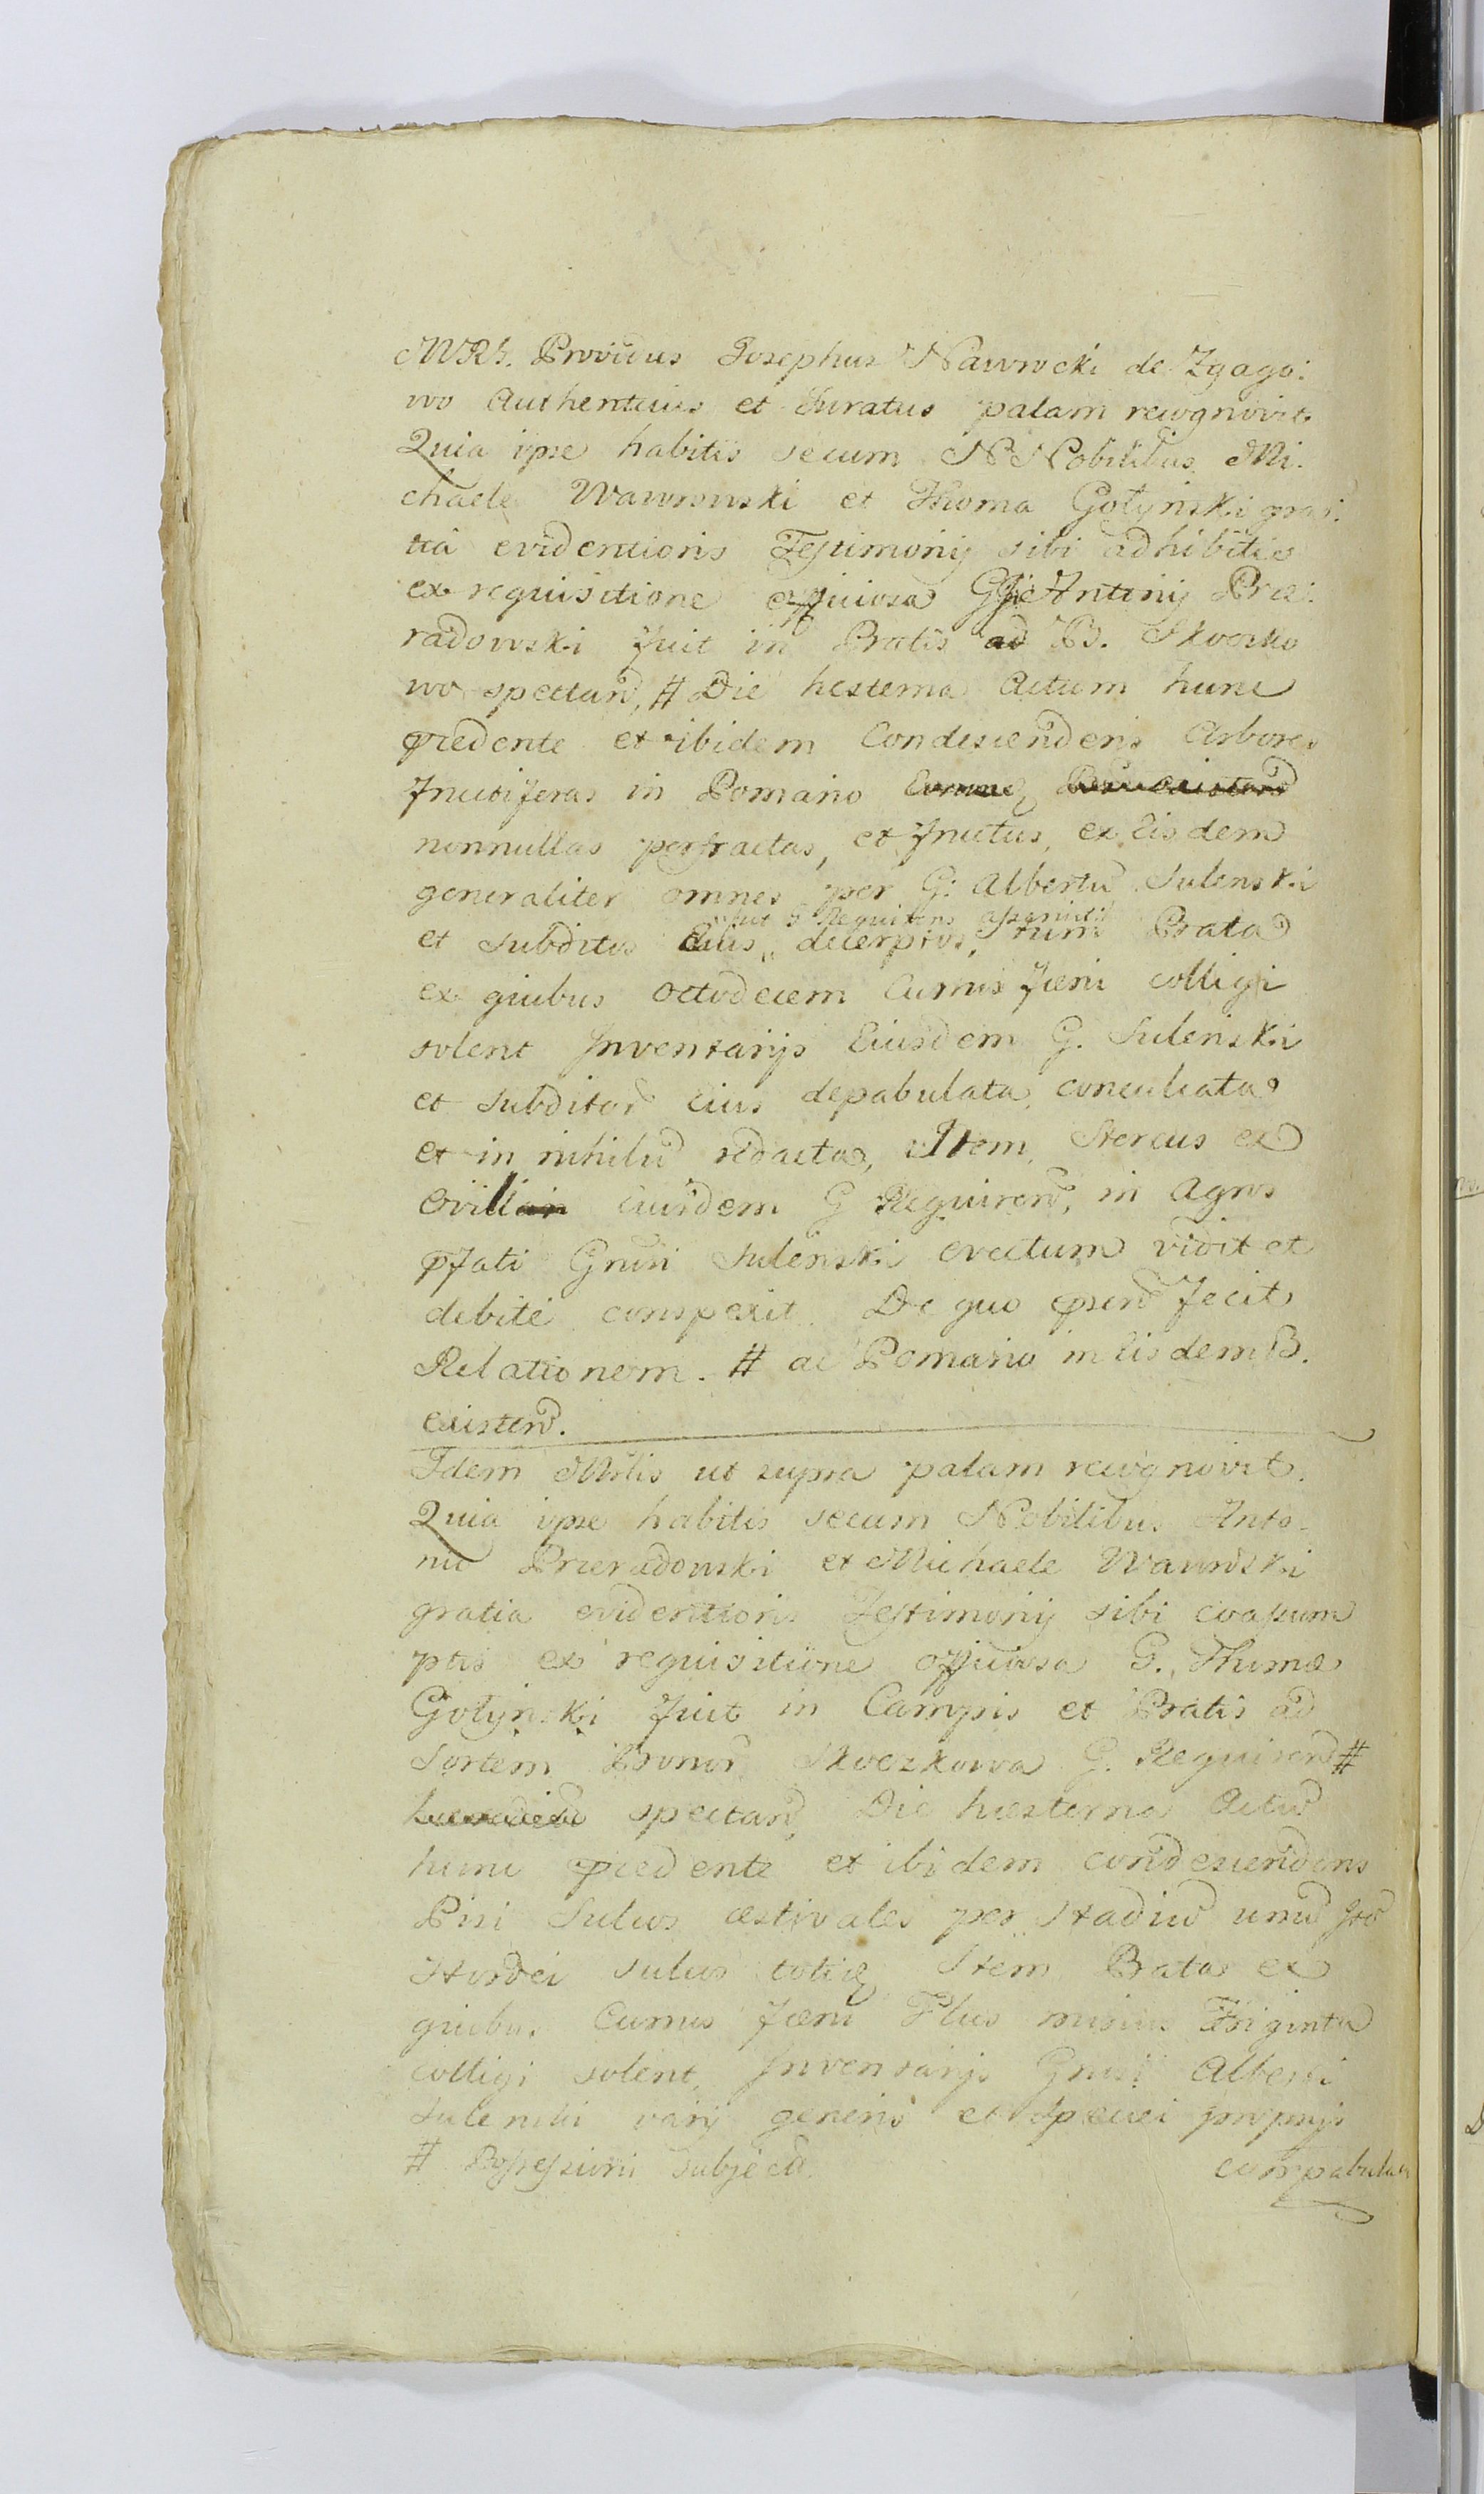 MRŁ. Providus Josephus Nawrocki de Zgago:
wo Authenticus et Juratus palam recognovit
Quia ipse habitis secum NNobilibus Mi:
chaele Wawrowski et Thoma Gołyński gra:
tia evidentioris Testimonij sibi adhibitis
ex requisitione officiosa G Antonij Prze:
radowski fuit in Pratis ad B. Skoczko
wo spectan, # Die hesterna Actum hunc
præcedente et ibidem Condescendens Arbores
fructiferas in Pomario
nonnullas perfractas, et fructus, ex Eisdem
generaliter omnes per G: Albertu Sulenski
et Subditos Eius, ut G Requirens asseruit decerptos, tum Prata
ex quibus Octodecem Currus fæni colligi
solent Inventarijs Eiusdem G. Sulenski
et Subditor Eius depabulata, conculcata
et in nihilu redacta, Item Stercus ex
Ovili Eiusdem G Requiren, in Agros
pfati Grusi Sulenski evectum vidit et
debite conspexit. De quo præsen fecit
Relationem. # ac Pomario in Eisdem B.
existen.
Idem Mrlis ut supra palam recognovit.
Quia ipse habitis secum Nobilibus Anto-
nio Przeradowski et Michaele Wawrowski
gratia evidentioris Testimonij sibi coassum
ptis ex requisitione officiosa G. Thomæ
Gołyński fuit in Campis et Pratis ad
Sortem Bonor Skoczkowa G. Requiren #
spectan, Die hæsterna Actu
hunc præcedente et ibidem condescendens
Pisi Sulcos æstivales per Stadiu unu Ite
Hordei sulcos totide Item Prata ex
quibus Currus fæni Plus minus Triginta
colligi solent, Inventarijs Grusi Alberti
Sulenski varij generis et Speciei proprijs
# Possessioni Subjecta compabulat